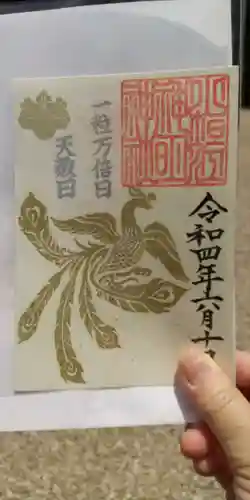 神明
神社
令和四年六月十
一粒万倍日
天赦日